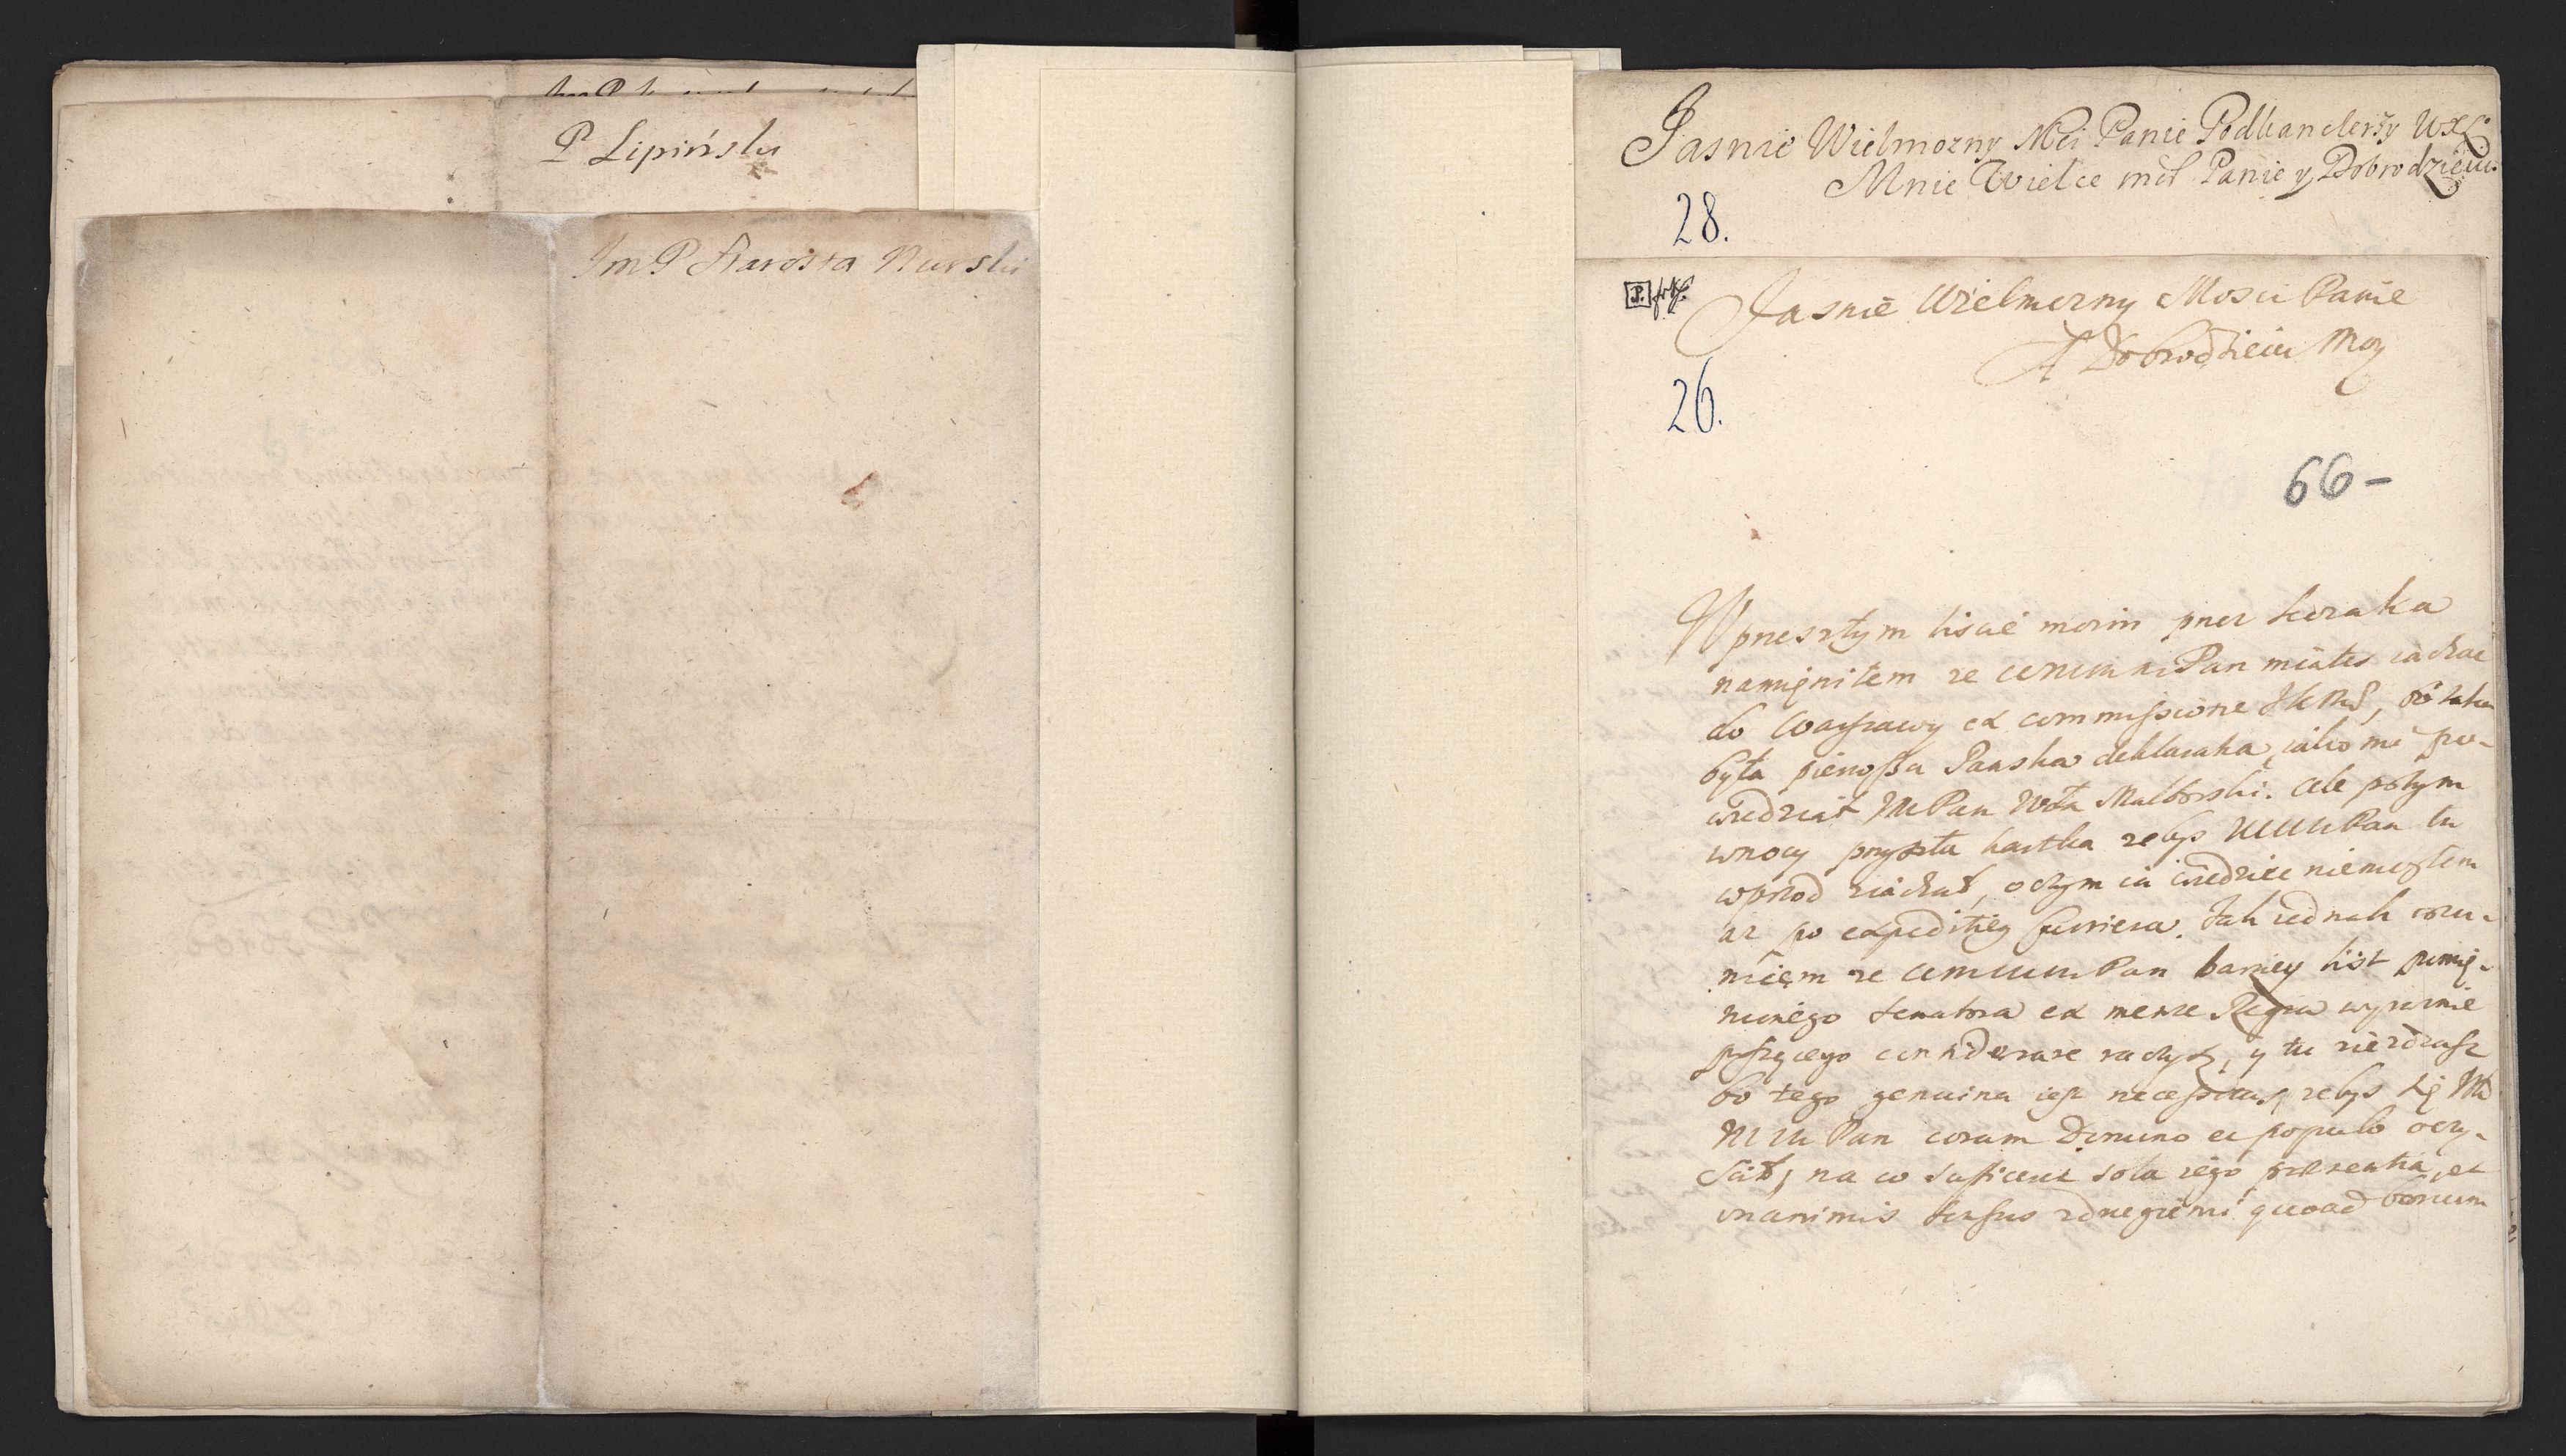 P Lipiński
Im P Starosta Nurski
Jasnie Wielmozny Mci Panie Podkanclerzy WXL
Mnie Wielce mćł Panie y Dobrodzieiu
28.
Jasnie Wielmozny Mosci Panie
A Dobrodzieiu Moy
26.
66-
W przeszłym liscie moim przez kozaka
namięniłem ze Pan miałes iachac
do Warszawy ex commissione, bo taka
była pierwsza Panska deklaratia, iako mi po-
wiedział IM Pan Wda Malborski. ale potym
wnocy przyszła kartka zebys WMM Pan tu
wprzod ziachał, oczym ia wiedziec niemogłem
az po expeditiey kuriera. Tak iednak rozu-
miem ze Pan barziey list pomię-
nionego Senatora ex mente Regia wyraznie
piszącego considerare raczysz, y tu ziezdzasz
bo tego genuina iest necessitas, zebys się Wm
M M Pan coram Domino et populo oczy-
scił, na co suficiet sola iego præsentia, et
unanimis sensus znegiemi quoad bonum